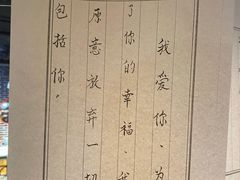 我爱你、为
了你的幸福、我
愿意放弃一切
包括你。